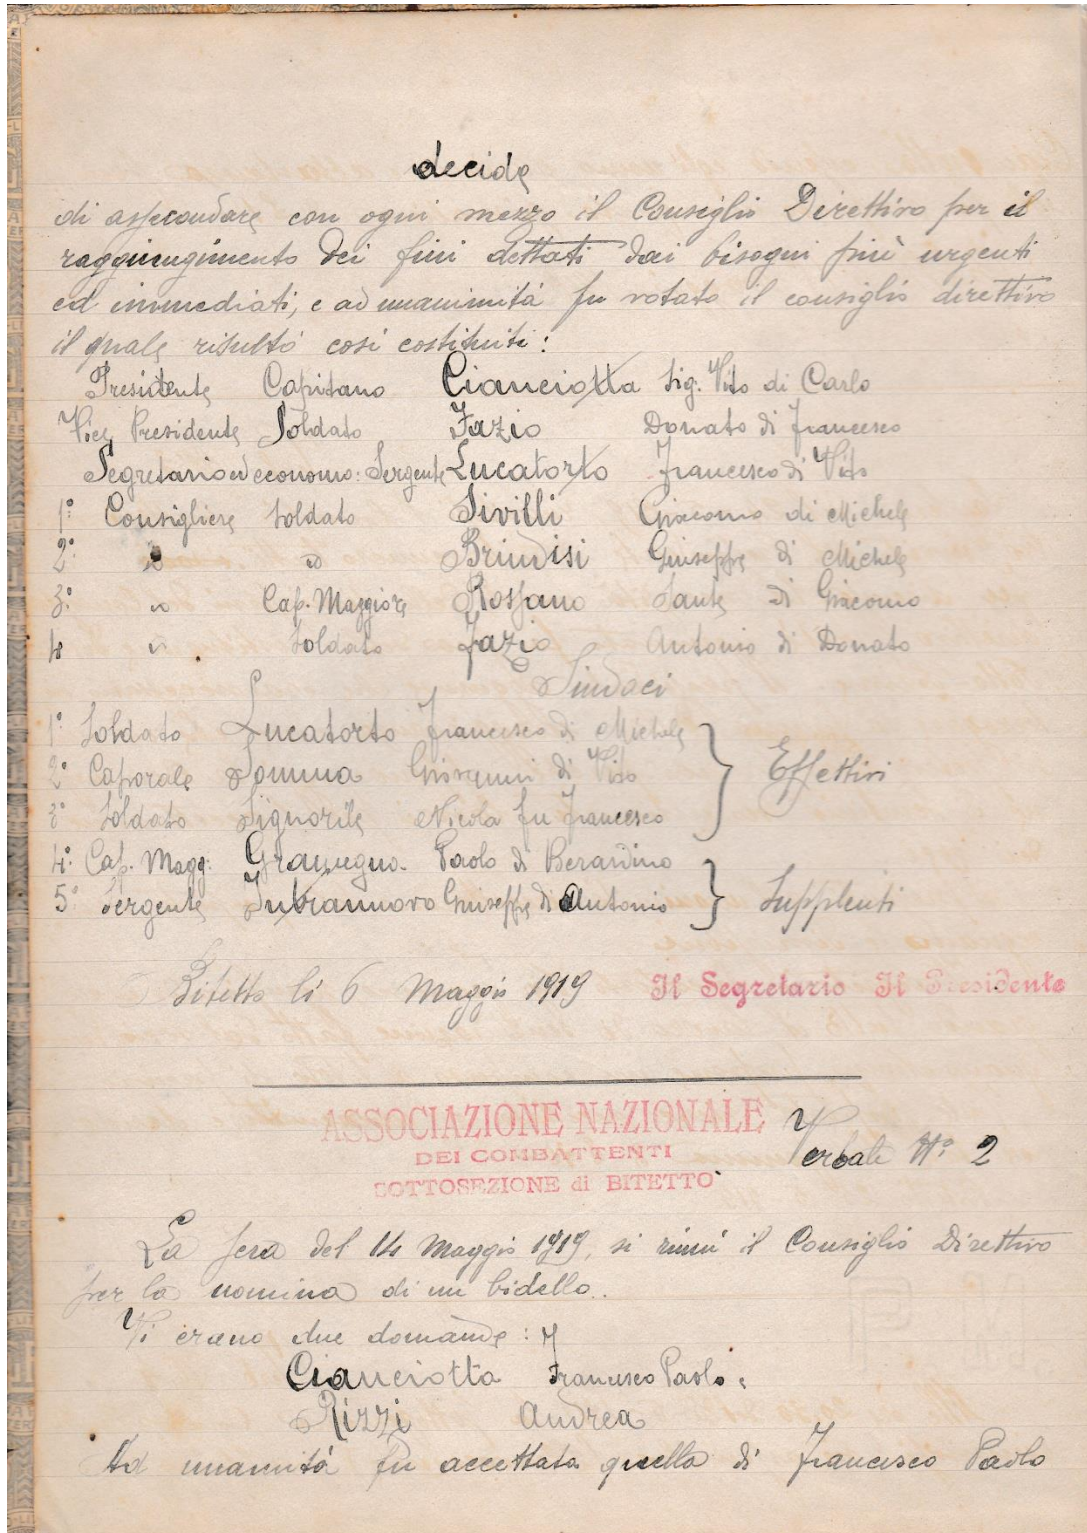 decide
di assecondare con ogni mezzo il Consiglio Direttivo per il
raggiungimento dei fini dettati dai bisogni più urgenti
ed immediati, e ad unanimità fu votato il consiglio direttivo
il quale risultó cosi costituiti:
Presidente Capitano Cianciotta Sig. Vito di Carlo
Vice Presidente Soldato Fazio Donato di Francesco
Segretario ed economo: Sergente Lucatorto Francesco di Vito
1º Consigliere Soldato Sivilli Giacomo di Michele
2º " " Brindisi Giuseppe di Michele
3º " Cap. Maggiore Rossano Sante di Giacomo
4 " Soldato Fazio Antonio di Donato
Sindaci
1º Soldato Lucatorto Francesco di Michele
2º Caporale Somma Giovanni di Vito
Effettivi
3º Soldato Signorile Nicola fu Francesco
4º Cap. Magg. Gramegna Paolo di Berardino
5º Sergente Intrannovo Giuseppe di Antonio
Supplenti
Bitetto li 6 Maggio 1919 Il Segretario Il Presidente
ASSOCIAZIONE NAZIONALE
DEI COMBATTENTI
SOTTOSEZIONE di BITETTO
Verbale Nº 2
La sera del 14 Maggio 1919, si riunì il Consiglio Direttivo
per la nomina di un bidello.
Vi erano due domande:
Cianciotta Francesco Paolo
Rizzi Andrea
Ad unanimità fu accettata quella di Francesco Paolo